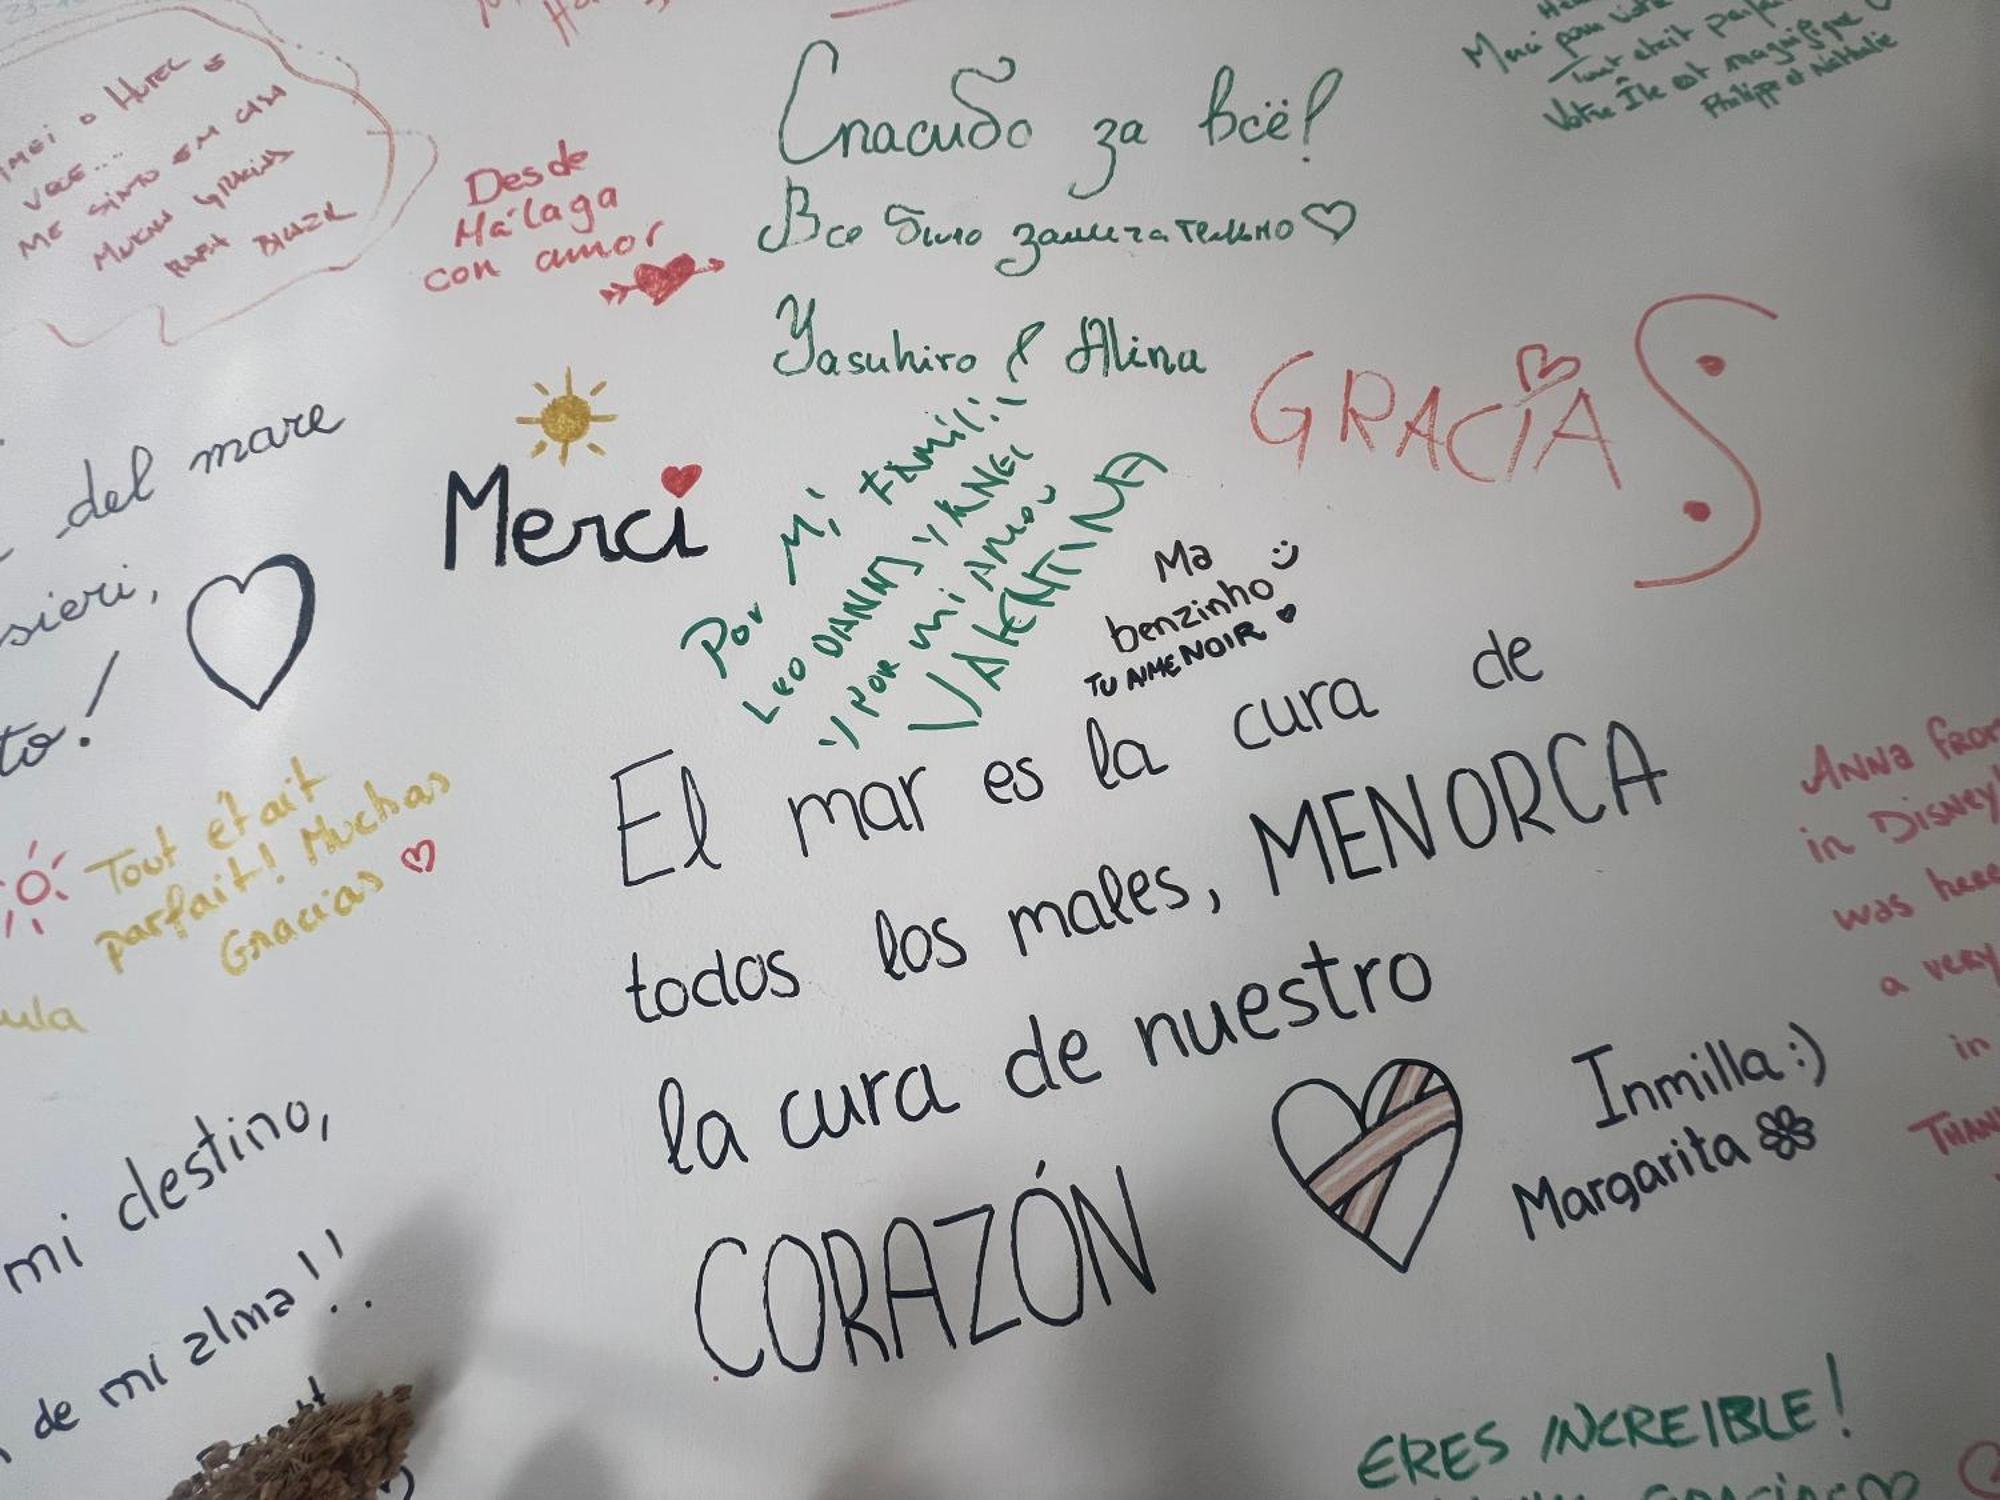 23-
o HOTEL e
VECE....
ME SINTO EM CASA
RAFA BRAZIL
Desde
Málaga
con amor
Спасибо за всё!
Все было замечательно
Yasuhiro & Alina
Merci pour votre
Tout etait
Votre Île est magnifique
Philippe et Nathalie
GRACIAS
del mare
sieri,
to!
Merci
Por Mi
LEO DANNY Y
Y POR mi AMOR
VALENTINA
Ma
benzinho
TU AIME NOIR
El mar es la cura de
todos los males, MENORCA
la cura de nuestro
CORAZÓN
Inmilla :)
Margarita
Tout était
parfait! Muchas
Gracias
ula
ANNA from
in Disney
was here
a very
in
THAN
mi destino,
de mi alma!!
ERES INCREIBLE!
GRACIAS